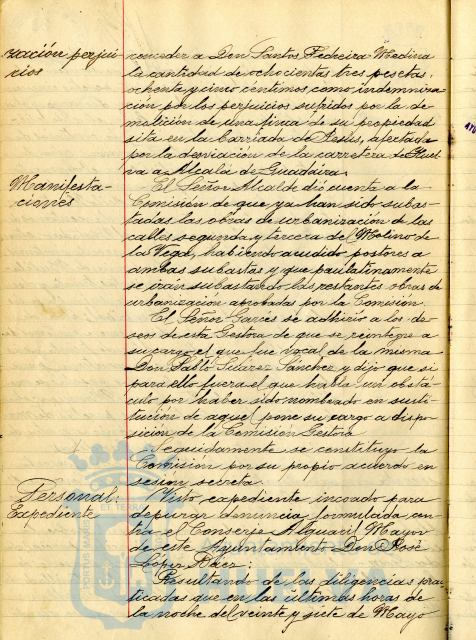 ración perjui-
cios
conceder a Don Santos Pedreira Medina
la cantidad de ochocientas tres pesetas,
ochenta y cinco centimos como indemniza-
ción por los perjuicios sufridos por la de-
molición de una finca de su propiedad
sita en la barriada de Jesús, afectada
por la desviación de la carretera de Huel-
va a Alcalá de Guadaira.
Manifesta-
ciones
El Señor Alcalde dió cuenta a la
Comisión de que ya han sido subas-
tadas las obras de urbanización de las
calles segunda y tercera del Molino de
la Vega, habiendo acudido postores a
ambas subastas y que paulatinamente
se irán subastando las restantes obras de
urbanización aprobadas por la Comisión.
El Señor Garcés se adhirió a los de-
seos de esta Gestora de que se reintegre a
su cargo el que fue vocal de la misma
Don Pablo Suarez Sanchez y dijo que si
para ello fuera el que habla un obstá-
culo por haber sido nombrado en susti-
tución de aquel, pone su cargo a dispo-
sición de la Comisión Gestora.
Seguidamente se constituyo la
Comision por su propio acuerdo en
sesion secreta.
Personal:
Expediente
Visto expediente incoado para
depurar denuncia formulada con-
tra el Conserje Alguacil Mayor
de este Ayuntamiento Don José
Lopez Baez;
Resultando de las diligencias prac-
ticadas que en las últimas horas de
la noche del veinte y siete de Mayo